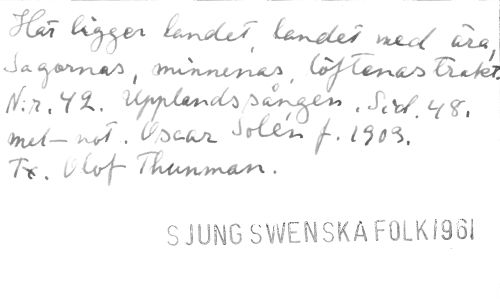 Här ligger landet, landet med ära,
Sagornas, minnenas, löftenas trakt.
N:r. 42. Upplandssången. Sid. 48.
mel-not. Oscar Solén f. 1903.
Tx. Olof Thunman.
SJUNG SWENSKA FOLK 1961